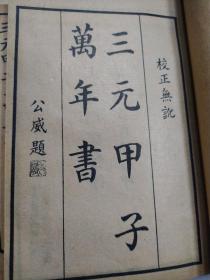 校正無訛
三元甲子
萬年書
公威題